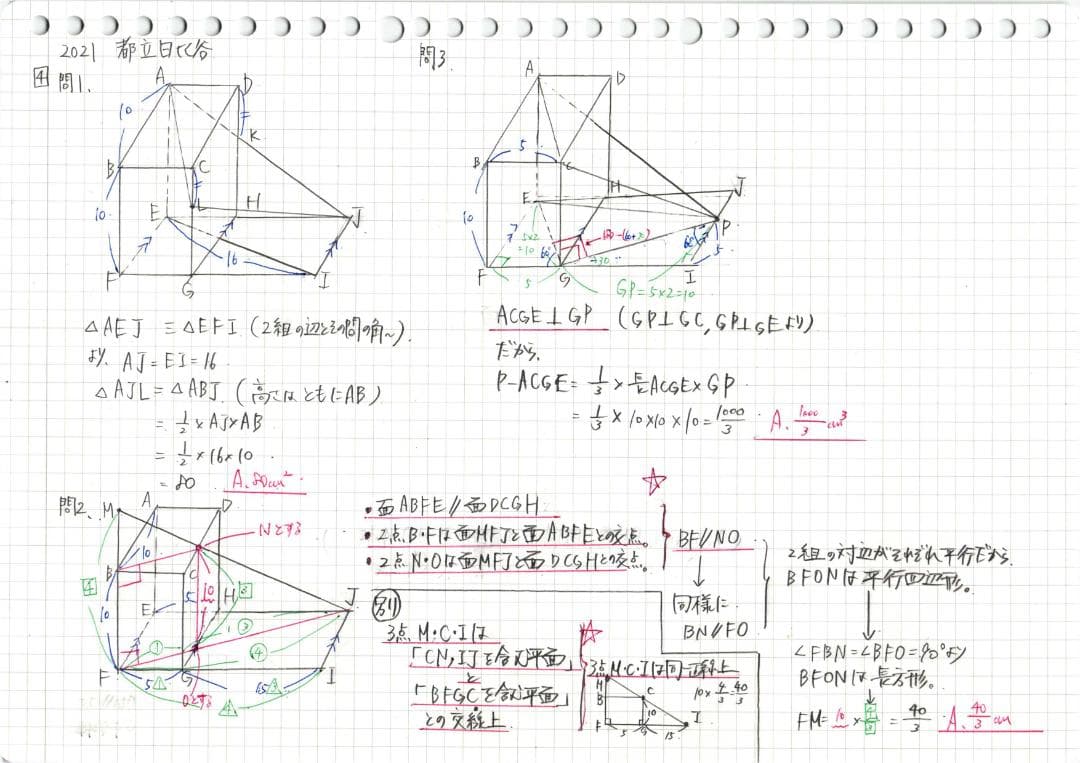 2021 都立日比谷
4 問1.
A
D
10
K
B
C
L
10
E
H
J
16
F
G
I
△AEJ ≡ △EFI (2組の辺とその間の角〜).
より、AJ=EI=16
△AJL=△ABJ (高さはともにAB)
= 1/2 × AJ×AB
= 1/2 × 16×10
= 80 A. 80cm²
問3.
A
D
B
5
C
10
E
H
J
5×2
=10
60°
P
5
F
5
G
I
GP=5×2=10
ACGE⊥GP (GP⊥GC, GP⊥GEより)
だから、
P-ACGE= 1/3 × 長ACGE× GP
= 1/3 × 10×10×10= 1000/3 A. 1000/3 cm³
問2.
M
A
D
Nとする
10
B
C
4
5
10
3
10
E
H
J
①
③
④
F
5
G
15
I
Oとする
・面ABFE // 面DCGH
・2点B・Fは面MFJと面ABFEとの交点。
・2点N・Oは面MFJと面DCGHとの交点。
BF//NO
↓
同様に
BN//FO
2組の対辺がそれぞれ平行だから、
BFONは平行四辺形。
∠FBN=∠BFO=90°より
BFONは長方形。
FM= 10 × 4/3 = 40/3 A. 40/3 cm
別
3点M・C・Iは
「CN, IJを含む平面」
と
「BFGCを含む平面」
との交線上
3点M・C・Iは同一直線上
M
B
C
10
I
F
5
G
15
10× 4/3 = 40/3